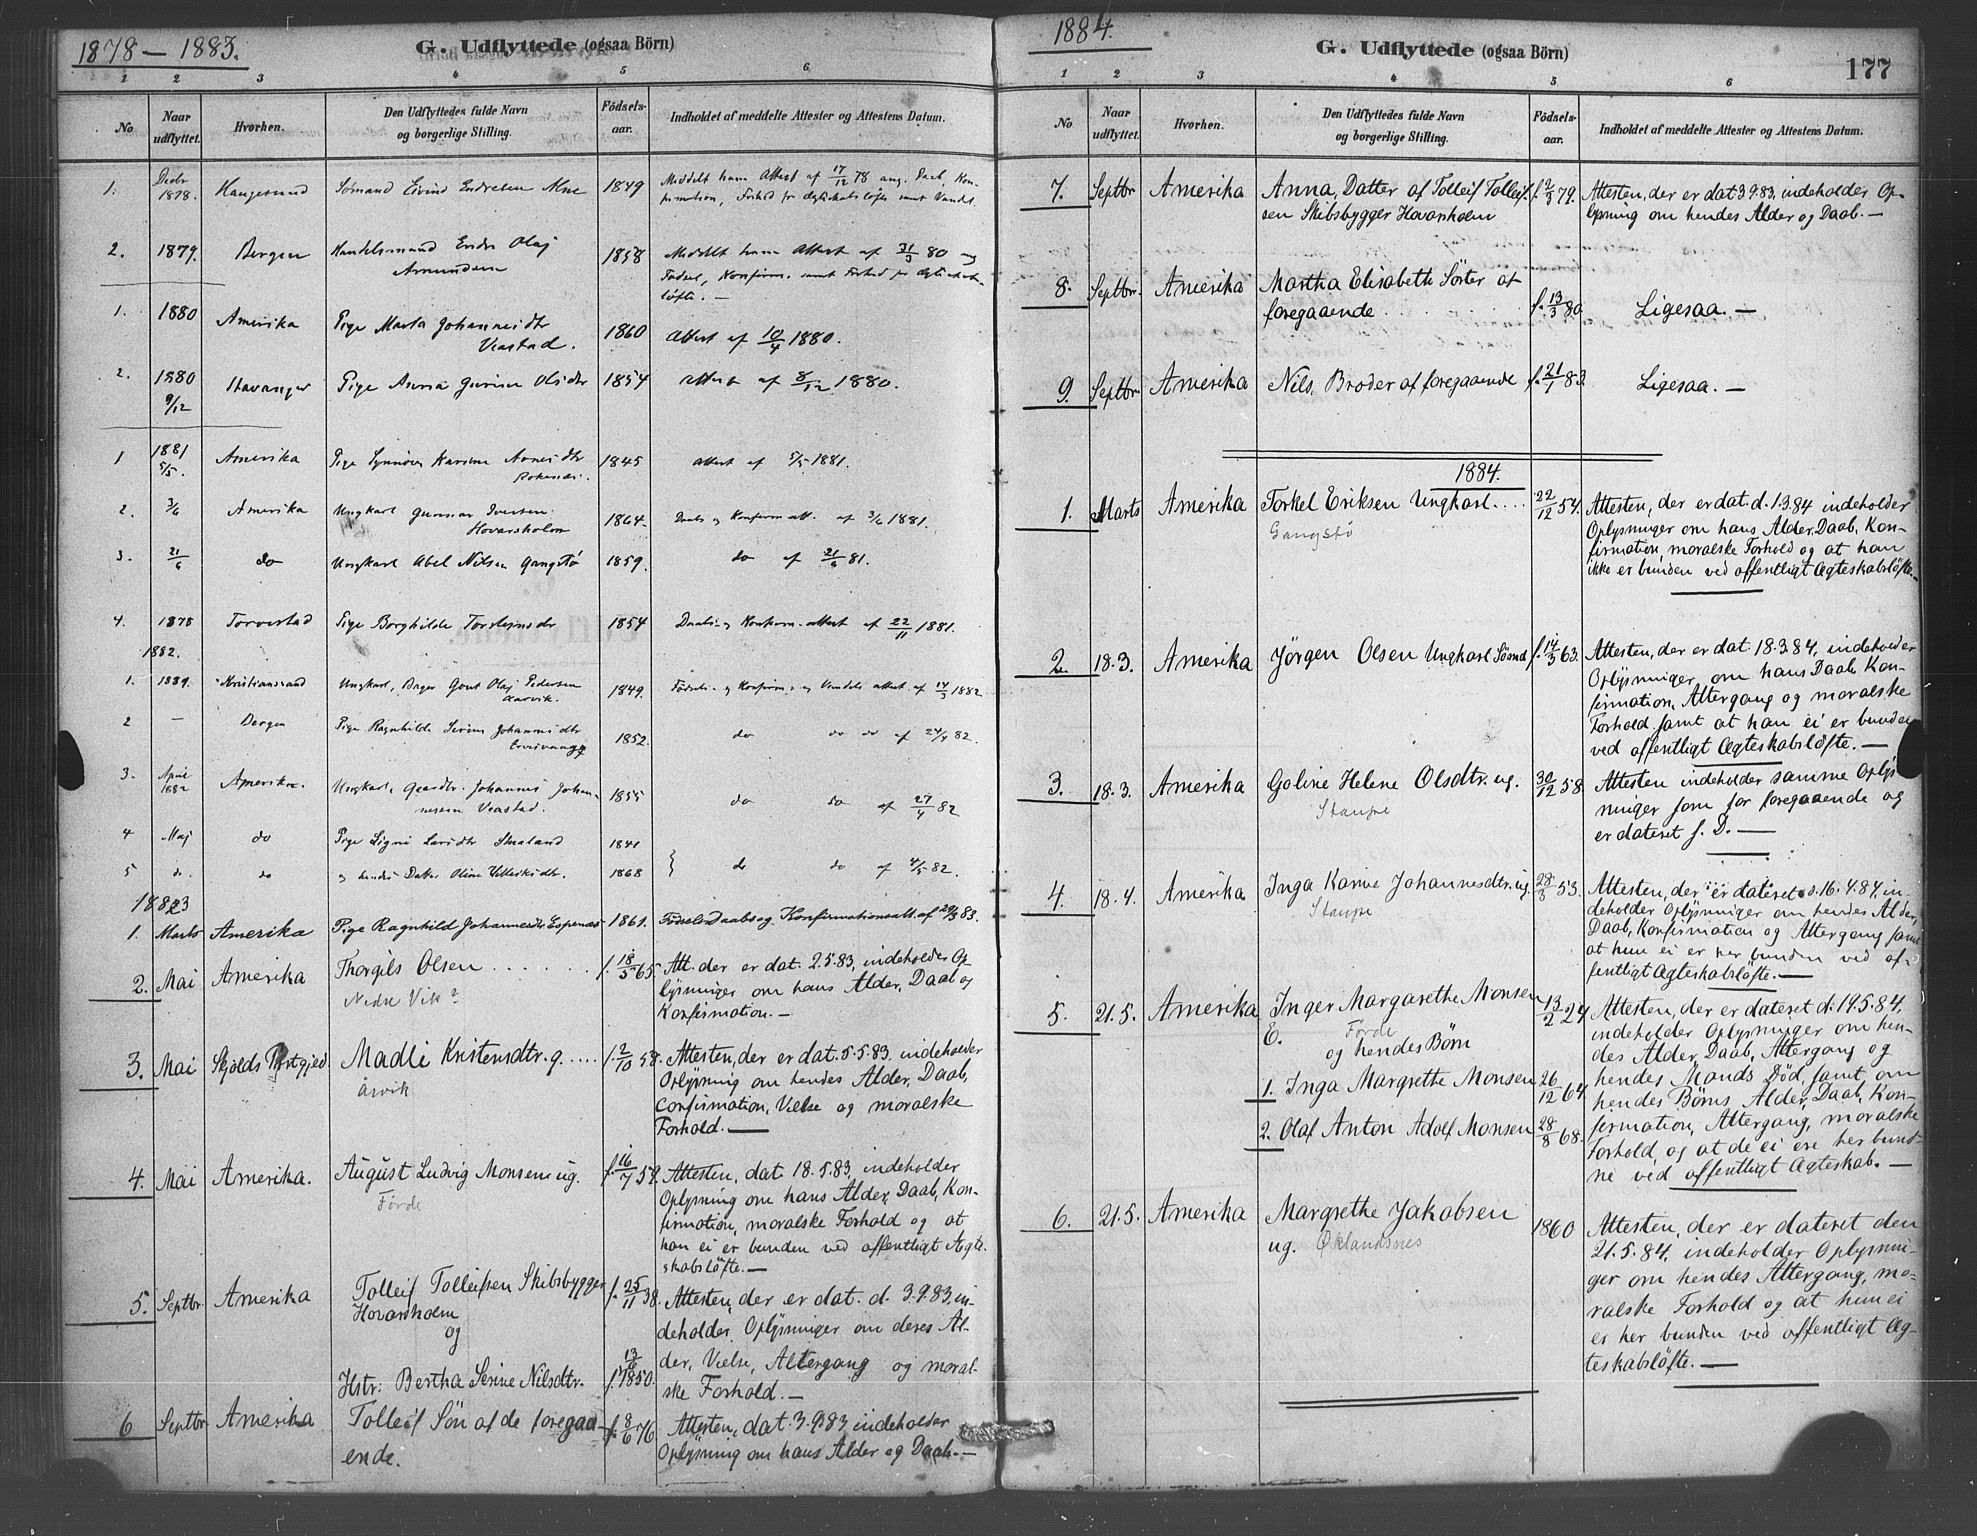 1878 – 1883.
G. Udflyttede (ogsaa Börn)
1 2 3 4 5 6
No
Naar udflyttet.
Hvorhen.
Den Udflyttedes fulde Navn
og borgerlige Stilling.
Födsels-
aar.
Indholdet af meddelte Attester og Attestens Datum.
1. Decbr 1878. Haugesund Sömand Eivind Endresen 1849 Meddelt ham Attest af 17/12 78 ang. Daab, Kon-
firmation, Forhold for Ægteskabsløfte samt Vandel.
2. 1879. Bergen Handelsmand Endre Olaj
Amundsen 1858 Meddelt ham Attest af 31/3 80 ang
Födsel, Konfirm. samt Forhold for Ægteskabs-
løfte. —
1. 1880 Amerika Pige Marta Johannesdtr
Veastad. 1860 Attest af 10/4 1880.
2. 1880 9/12 Stavanger Pige Anna Gurine Olsdtr 1854 Attest af 8/12 1880.
1 1881 5/5. Amerika Pige Synnöve Karine Arnesdtr 1845 Attest af 5/5 1881.
2. 3/6 Amerika Ungkarl Gunnar Iversen
Hovarsholm 1864. Daabs og Konfirm att. af 3/6 1881.
3. 21/6 do Ungkarl Abel Nilsen Gangstø 1859. do af 21/6 81.
4. 1878 Torvestad Pige Borghilde Torsteinsdr 1854 Daabs- og Konfirm. attest af 22/11 1881.
1882.
1. 1881. Kristianssand Ungkarl, Bager Gout Olaj Pedersen
Aarvik. 1849. Födsels- og Konfirm.- og Vandels attest af 14/3 1882
2 — Bergen Pige Ragnhilde Serine Johannesdtr
1852. do do do af 24/4 82.
3. April 1882 Amerika. Ungkarl, Johannes Johan-
nesen Veastad. 1855 do do af 27/4 82
4 Maj do Pige Signi Larsdtr Smaland 1841
5 do. do og hendes Datter Oline Villeiksdtr. 1868 } do do af 4/5 82.
1883
1. Marts Amerika Pige Ragnhild Johannesdtr Espenæs 1861. Födsels Daabs og Konfirmationsatt. af 29/3 83.
2. Mai Amerika Thorgils Olsen . . . . . . f. 18/5 65. Att. der er dat. 2.5.83, indeholder Op-
Nedre Vik?
lysninger om hans Alder, Daab og
Konfirmation. —
3. Mai Skjolds Præstgjeld Madli Kristensdtr. g. .... f. 2/10 58. Attesten, der er dat. 5.5.83 indeholder
Årvik
Oplysning om hendes Alder, Daab,
Confirmation, Vielse og moralske
Forhold. —
4. Mai Amerika. August Ludvig Monsen ug. f. 16/7 59. Attesten, dat. 18.5.83, indeholder
Förde
Oplysning om hans Alder, Daab, Kon-
firmation, moralske Forhold og at
han ei er bunden ved offentligt Ægte-
skabsløfte. —
5. Septbr. Amerika Tolleif Tolleifsen Skibsbygger f. 25/11 38. Attesten, der er dat. d. 3.9.83, in-
Hovarsholm
og
deholder Oplysninger om deres Al-
der, Vielse, Altergang og moral-
Hstr: Bertha Serine Nilsdtr. f. 13/6 1850. ske Forhold. —
6 Septbr Amerika Tolleif Sön af de foregaa-
ende. f. 8/6 76. Attesten, dat. 3.9.83 indeholder
Oplysning om hans Alder og Daab. —
1884.
G. Udflyttede (ogsaa Börn)
177
1 2 3 4 5 6
No.
Naar udflyttet.
Hvorhen.
Den Udflyttedes fulde Navn
og borgerlige Stilling.
Födsels-
aar.
Indholdet af meddelte Attester og Attestens Datum.
7. Septbr Amerika Anna, Datter af Tolleif Tolleif-
sen Skibsbygger Hovarsholm f. 2/3 79. Attesten, der er dat 3.9.83, indeholder Op-
lysning om hendes Alder og Daab. —
8. Septbr. Amerika Martha Elisabeth Söster af
foregaaende f. 13/3 80 Ligesaa. —
9. Septbr Amerika Nils, Broder af foregaaende f. 21/1 83. Ligesaa. —
1884.
1. Marts Amerika Torkel Eriksen Ungkarl .... 22/12 54. Attesten, der er dat. d. 1.3.84 indeholder
Gangstö
Oplysninger om hans Alder, Daab, Kon-
firmation, moralske Forhold og at han
ikke er bunden ved offentligt Ægteskabsløfte. —
2. 18.3. Amerika Jörgen Olsen Ungkarl Sömd f. 14/3 63. Attesten, der er dat. 18.3.84, indeholder
Oplysninger om hans Daab, Kon-
firmation, Altergang og moralske
Forhold samt at han ei er bunden
ved offentligt Ægteskabsløfte. —
3. 18.3. Amerika Goline Helene Olsdtr. ug. 30/12 58. Attesten indeholder samme Oplys-
Staupe
ninger som for foregaaende og
er dateret s. D. —
4. 18.4. Amerika Inga Karine Johannesdtr. ug. 28/3 53. Attesten, der er dateret d. 16.4.84, in-
Staupe
deholder Oplysninger om hendes Alder,
Daab, Konfirmation og Altergang samt
at hun ei er her bunden ved of-
fentligt Ægteskabsløfte. —
5. 21.5. Amerika Inger Margarethe Monsen 13/2 24 Attesten, der er dateret d. 19.5.84,
E. Förde
og hendes Börn
indeholder Oplysninger om hen-
des Alder, Daab, Altergang og
1. Inga Margrethe Monsen 26/12 64 hendes Mands Död, samt om
hendes Börns Alder, Daab, Kon-
2. Olaf Anton Adolf Monsen 28/8 68. firmation, Altergang, moralske
Forhold, og at de ei ere her bund-
ne ved offentligt Ægteskab. —
6. 21.5. Amerika Margrethe Jakobsen
ug. Oklandsnes 1860 Attesten, der er dateret den
21.5.84, indeholder Oplysnin-
ger om hendes Altergang, mo-
ralske Forhold og at hun ei
er her bunden ved offentligt Æg-
teskabsløfte. —